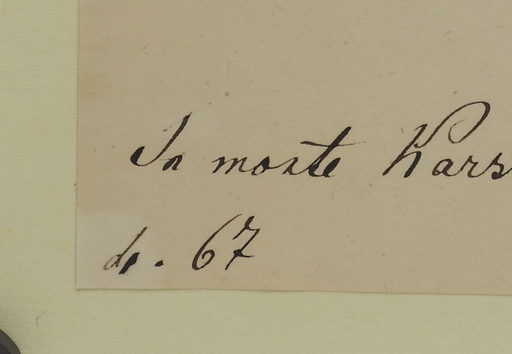 In monte Kars
d. 67